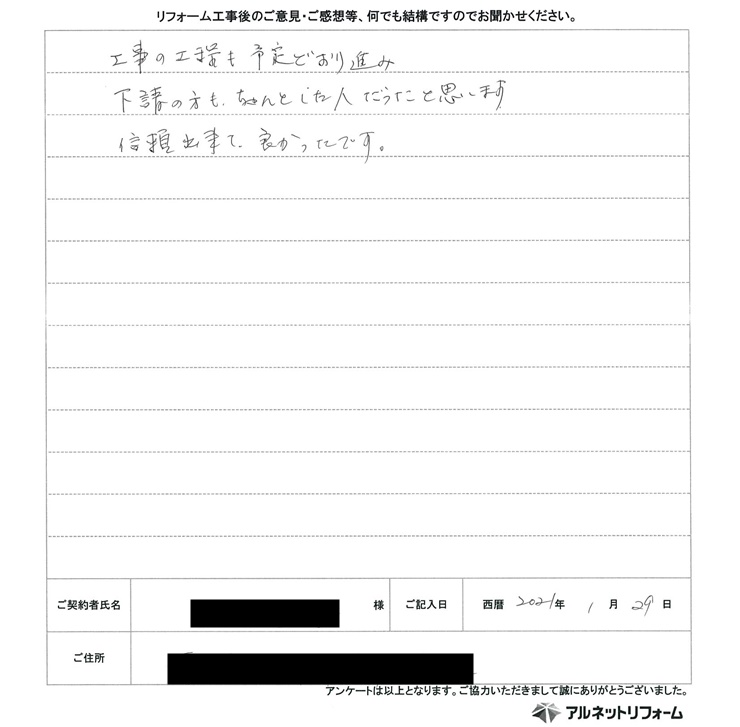 リフォーム工事後のご意見・ご感想等、何でも結構ですのでお聞かせください。
工事の工程も予定どおり進み
下請の方も、ちゃんとした人だったと思います
信頼出来て、良かったです。
ご契約者氏名 様 ご記入日 西暦 2021年 1月 29日
ご住所
アンケートは以上となります。ご協力いただきまして誠にありがとうございました。
アルネットリフォーム